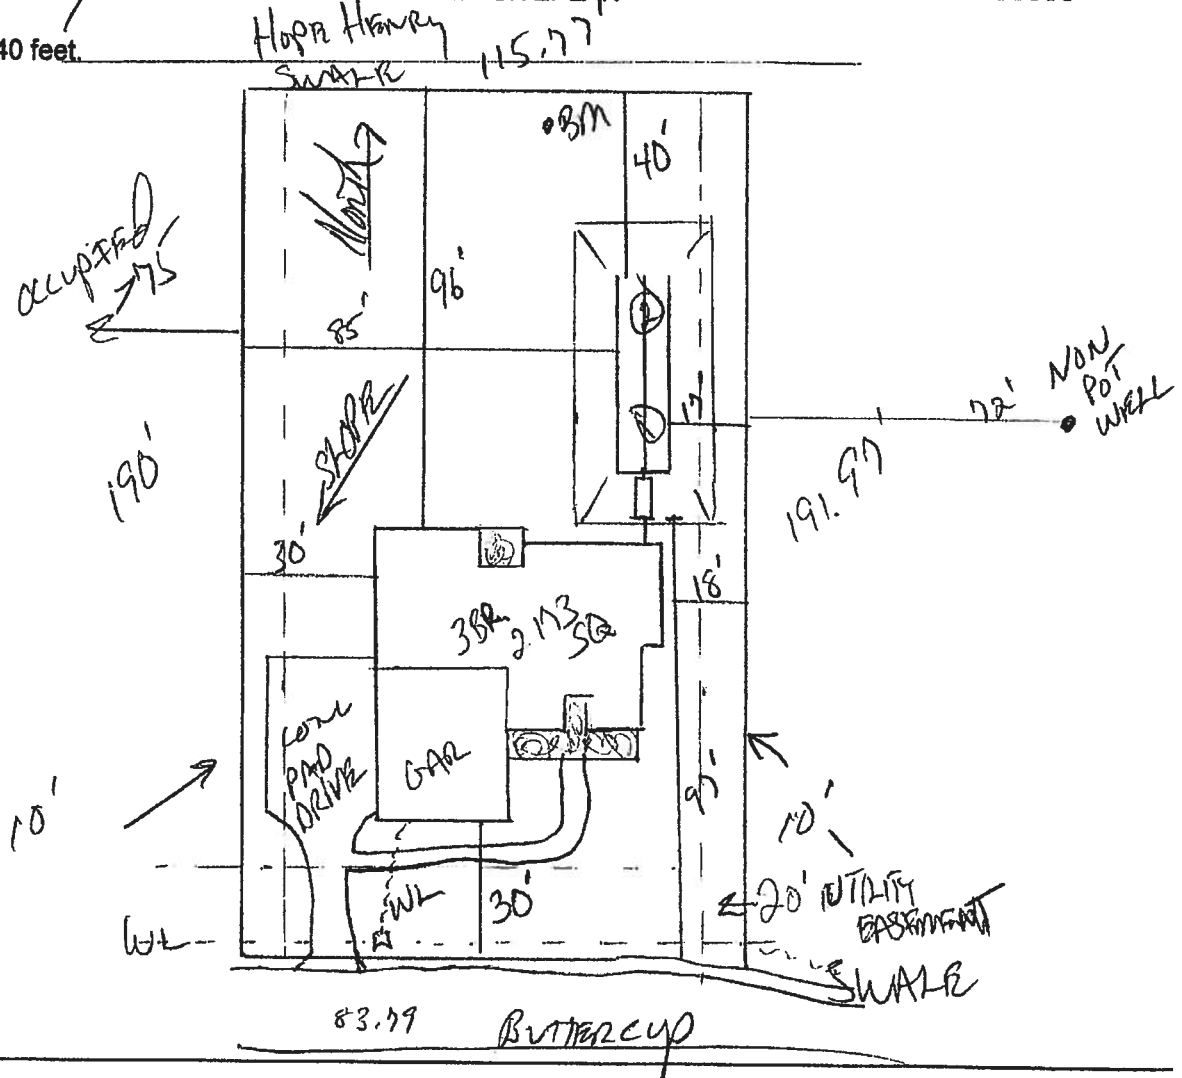 40 feet.
HOPE HENRY
115.77
SWALE
BM
40'
North
OCCUPIED
75'
96'
85'
SLOPE
17'
72'
NON
POT
WELL
190'
191.97
30'
18'
3BR
2.173
SQ
CONC
PAD
DRIVE
GAR
97'
10'
10'
20' UTILITY
EASEMENT
WL
30'
WL
SWALE
83.79
BUTTERCUP